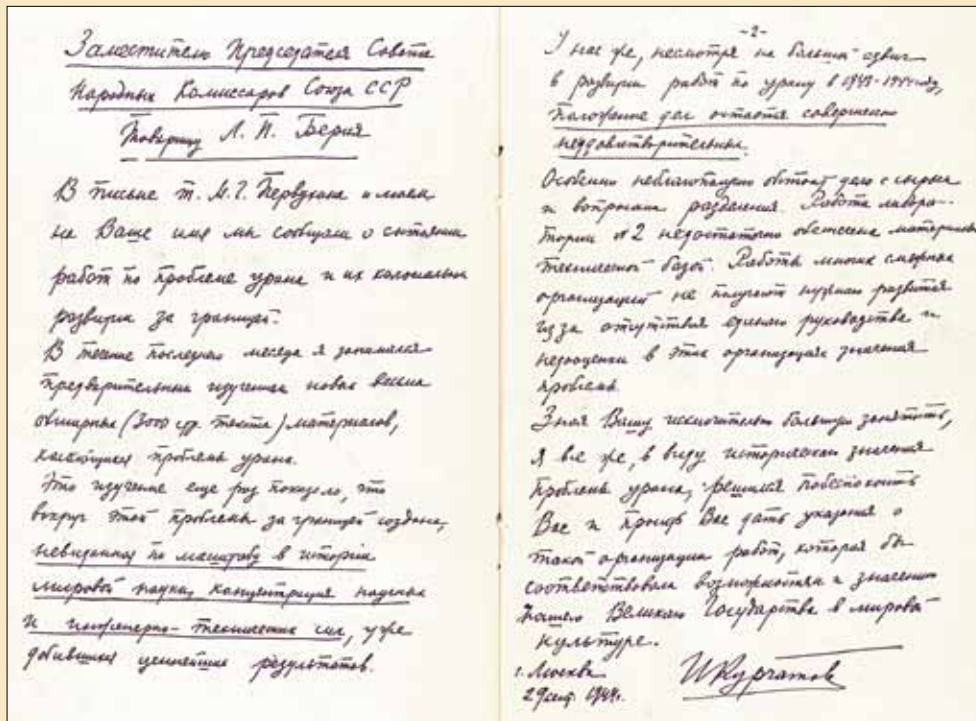 Заместителю Председателя Совета
Народных Комиссаров Союза ССР
Товарищу Л. П. Берия
В письме т. М. Г. Первухина и моем
на Ваше имя мы сообщали о состоянии
работ по проблеме урана и их колоссальном
развитии за границей.
В течение последнего месяца я занимался
предварительным изучением новых весьма
обширных (3000 стр. текста) материалов,
касающихся проблемы урана.
Это изучение еще раз показало, что
вокруг этой проблемы за границей создана,
невиданная по масштабу в истории
мировой науки, концентрация научных
и инженерно-технических сил, уже
добившихся ценнейших результатов.
-2-
У нас же, несмотря на большой сдвиг
в развитии работ по урану в 1943-1944 году,
положение дел остается совершенно
неудовлетворительным.
Особенно неблагополучно обстоит дело с сырьем
и вопросами разделения. Работа лабора-
тории №2 недостаточно обеспечена материально
технической базой. Работы многих смежных
организаций не получают нужного развития
из за отсутствия единого руководства и
недооценки в этих организациях значения
проблемы.
Зная Вашу исключительно большую занятость,
я все же, в виду исторического значения
проблемы урана, решился побеспокоить
Вас и просить Вас дать указания о
такой организации работ, которая бы
соответствовала возможностям и значению
нашего Великого Государства в мировой
культуре.
г. Москва
29 сент. 1944г.
И Курчатов